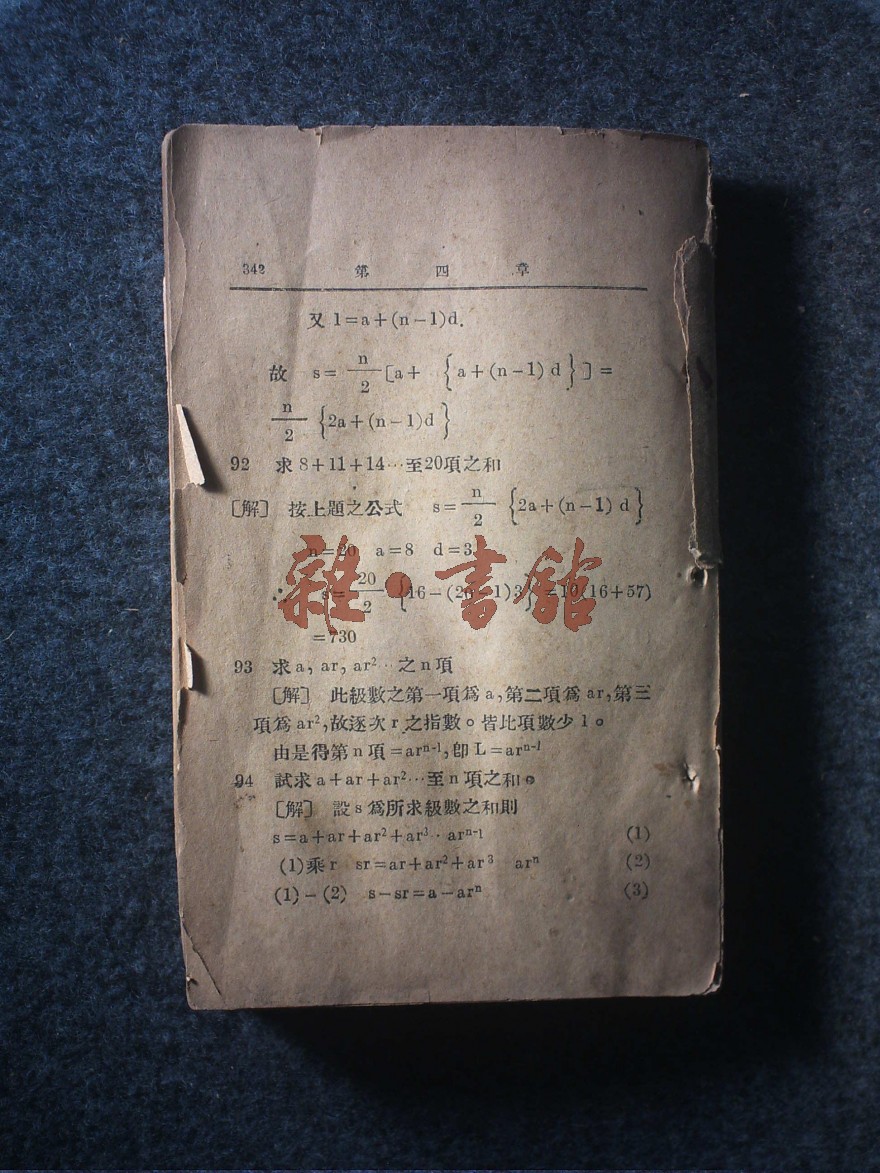 342 第四章
又 1=a+(n-1)d.
故 s= n/2 [a+ {a+(n-1) d}] =
n/2 {2a+(n-1)d}
92 求 8+11+14…至20項之和
[解] 按上題之公式 s= n/2 {2a+(n-1) d}
n=20 a=8 d=3
∴ s= 20/2 {16-(20-1)3} =10(16+57)
=730
雜·書館
93 求 a, ar, ar²…之 n 項
[解] 此級數之第一項爲 a, 第二項爲 ar, 第三
項爲 ar², 故逐次 r 之指數。皆比項數少 1。
由是得第 n 項=arⁿ⁻¹, 卽 L=arⁿ⁻¹
94 試求 a+ar+ar²…至 n 項之和。
[解] 設 s 爲所求級數之和則
s=a+ar+ar²+ar³‥arⁿ⁻¹ (1)
(1)乘 r sr=ar+ar²+ar³ arⁿ (2)
(1)-(2) s-sr=a-arⁿ (3)